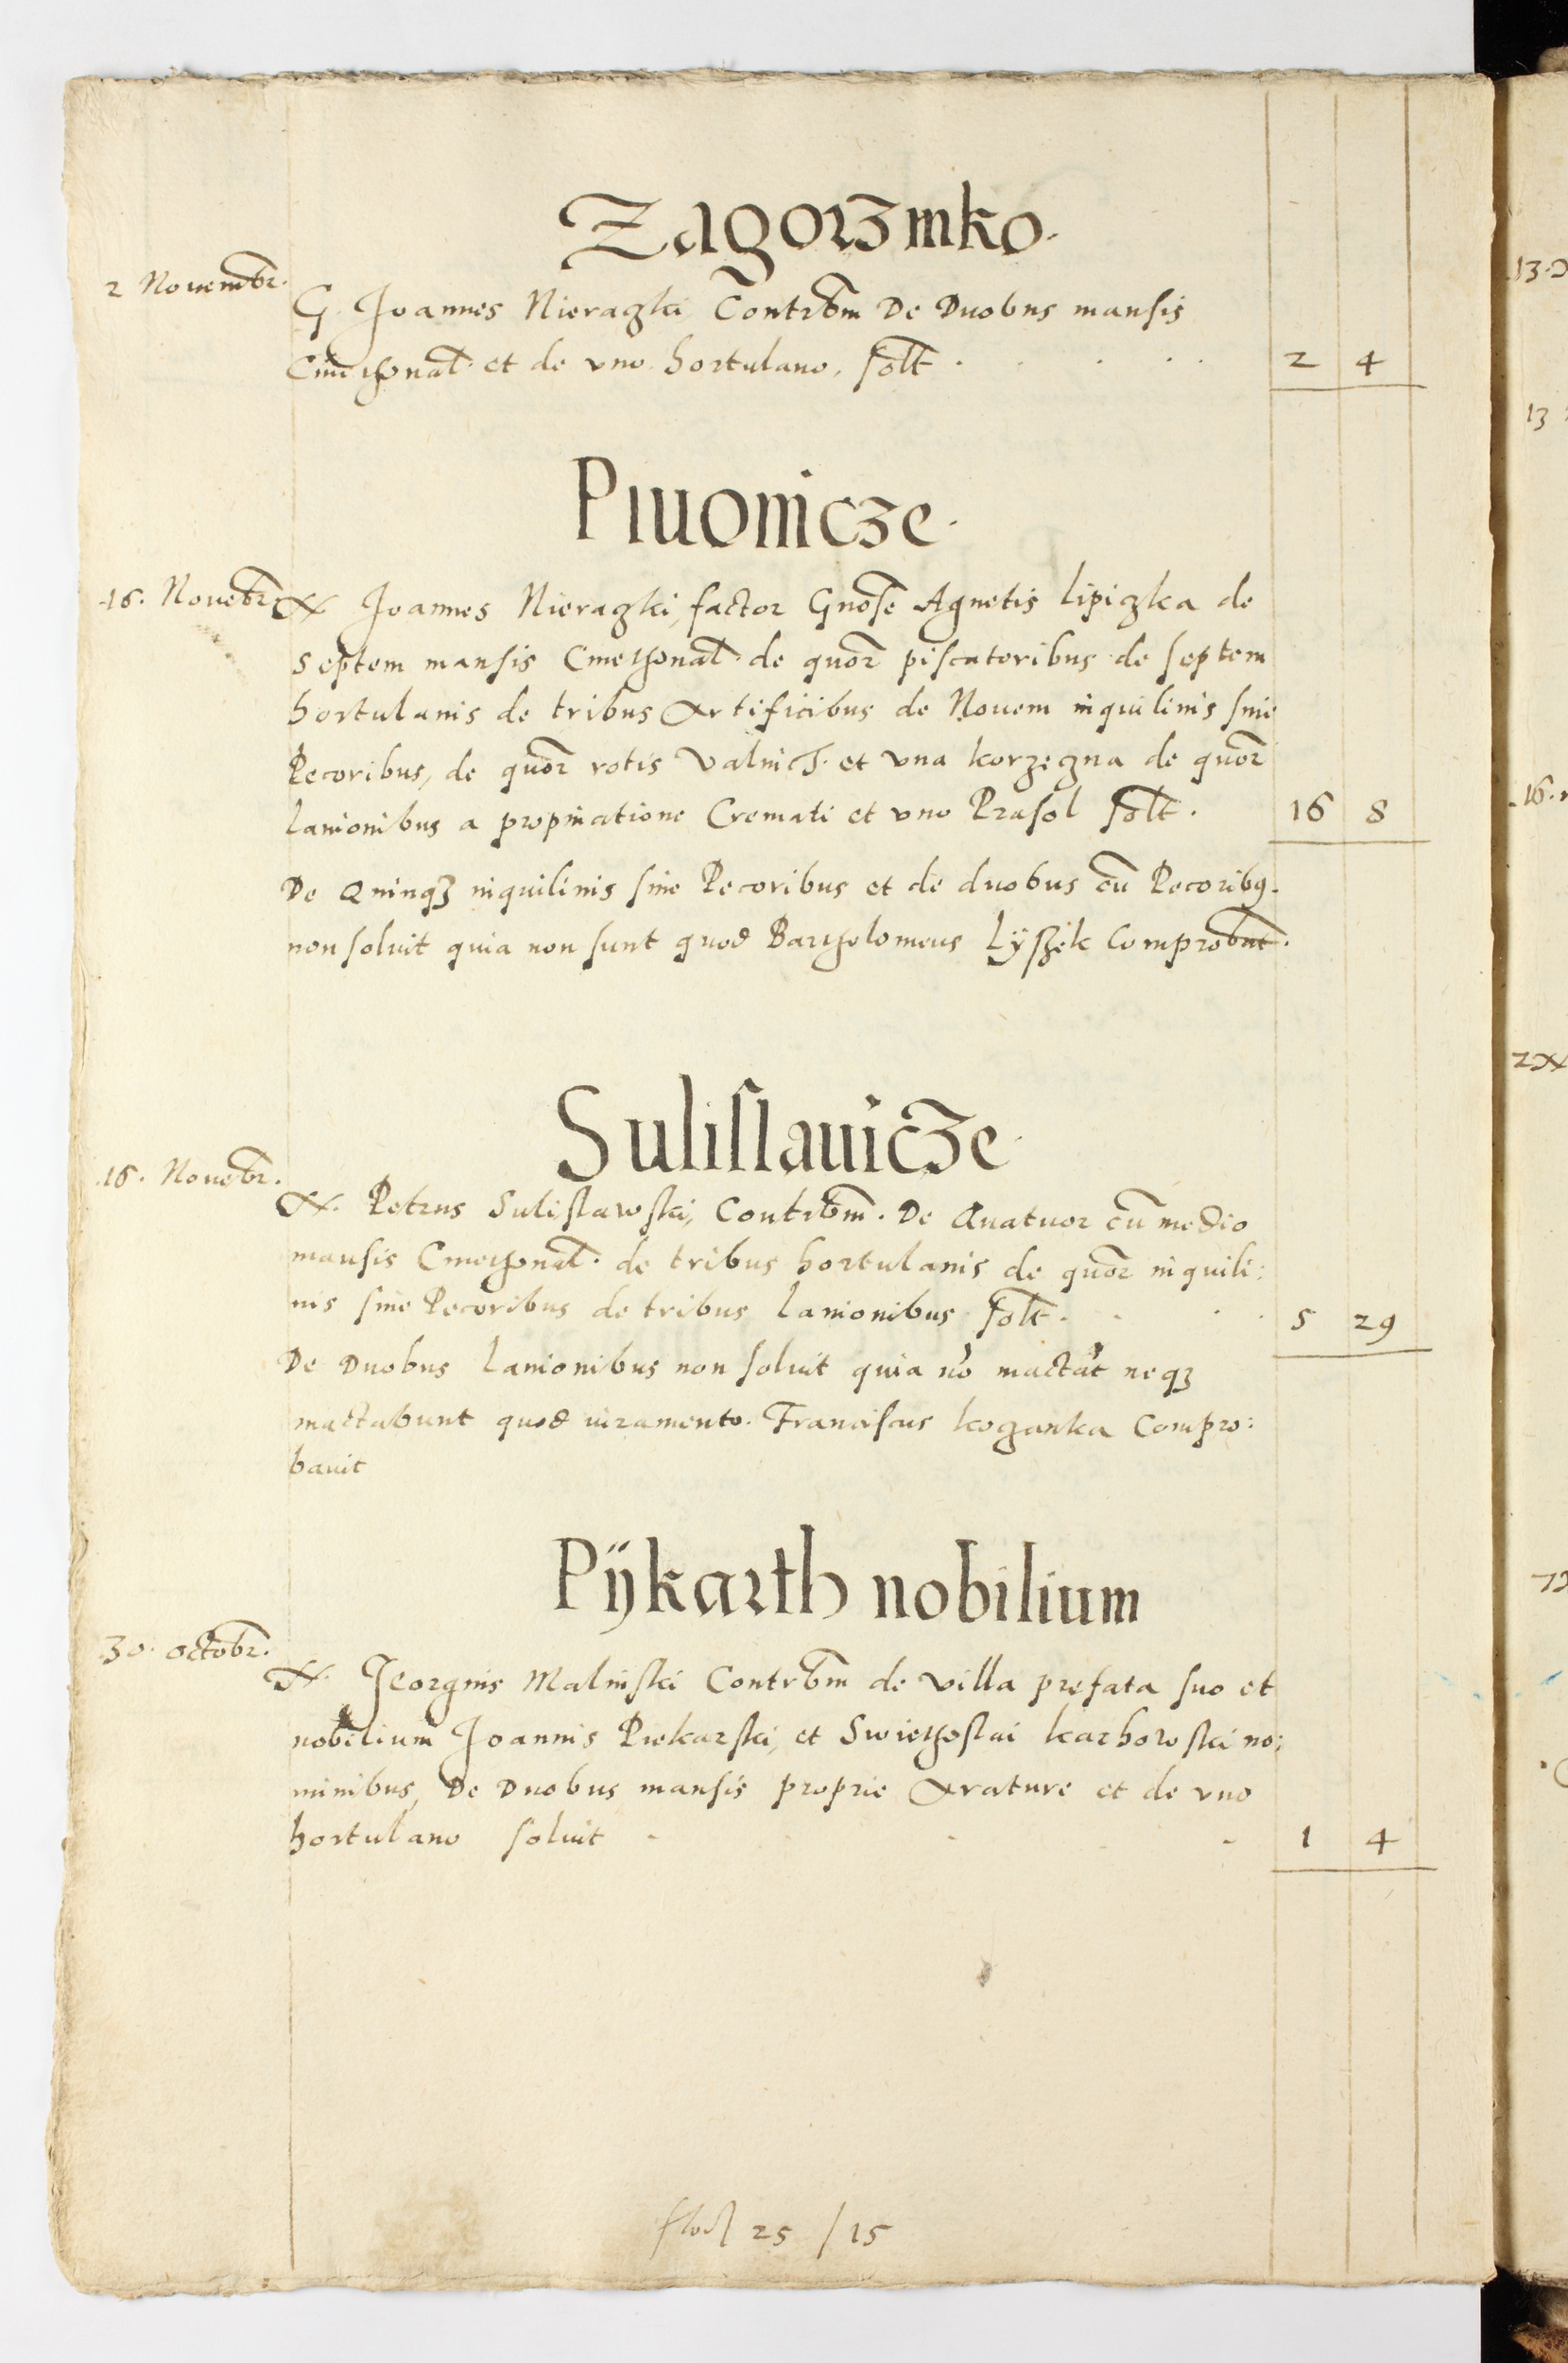 Zagorzinko.
2 Nouembr.
G. Joannes Nieraczki Contrbm De Duobus mansis
Cmethonal. et de vno hortulano. solt . . . . 2 4
Piuonicze.
16. Nouebr.
N Joannes Nieraczki, factor Gnose Agnetis Lipiczka de
septem mansis Cmethonal. de quor piscatoribus de septem
hortulanis de tribus Artificibus de Nouem inquilinis sine
Pecoribus, de quor rotis Valnic. et vna korzeczna de quor
Lanionibus a propinatione Cremati et vno Prasol solt. 16 8
De Quinqz inquilinis sine Pecoribus et de duobus cu Pecorib9.
non soluit quia non sunt quod Bartholomeus Lÿszek Comprobut.
Sulislauicze
16. Nouebr.
N. Petrus Sulislawski, Contrbm. De Quatuor cu medio
mansis Cmethonal. de tribus hortulanis de quor inquili:
nis sine Pecoribus de tribus Lanionibus solt . . . . 5 29
De Duobus Lanionibus non soluit quia no mactat neqz
mactabunt quod iuramento. Franciscus koganka Compro:
bauit
Pÿkarth nobilium
30. octobr.
N. Georgius Malinski Contrbm de villa prefata suo et
nobilium Joannis Piekarski, et Swiethoslai karhowski no:
minibus, De Duobus mansis proprie Arature et de vno
hortulano soluit - - - 1 4
25 / 15
13
13
16